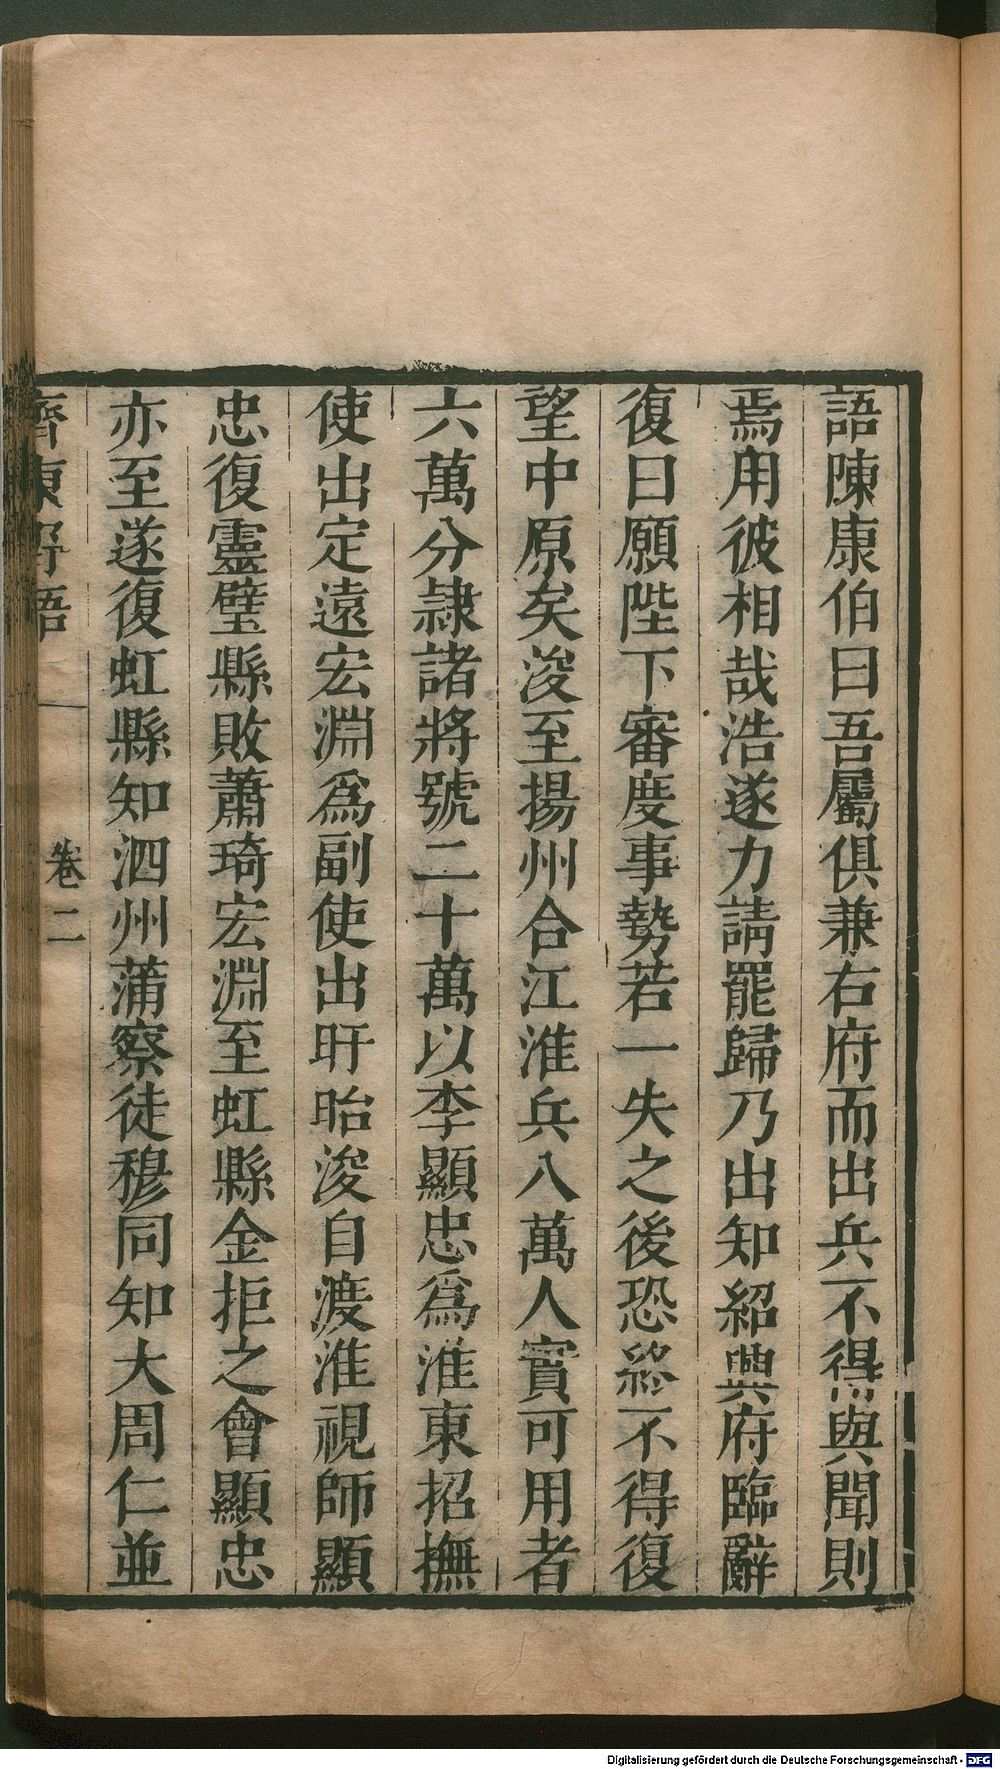 語陳康伯曰吾屬俱兼右府而出兵不得與聞則
焉用彼相哉浩遂力請罷歸乃出知紹興府臨辭
復曰願陛下審度事勢若一失之後恐終不得復
望中原矣浚至揚州合江淮兵八萬人實可用者
六萬分隷諸將號二十萬以李顯忠爲淮東招撫
使出定遠宏淵爲副使出盱眙浚自渡淮視師顯
忠復靈壁縣敗蕭琦宏淵至虹縣金拒之會顯忠
亦至遂復虹縣知泗州蒲察徒穆同知大周仁並
齊東野語
卷二
Digitalisierung gefördert durch die Deutsche Forschungsgemeinschaft - DFG